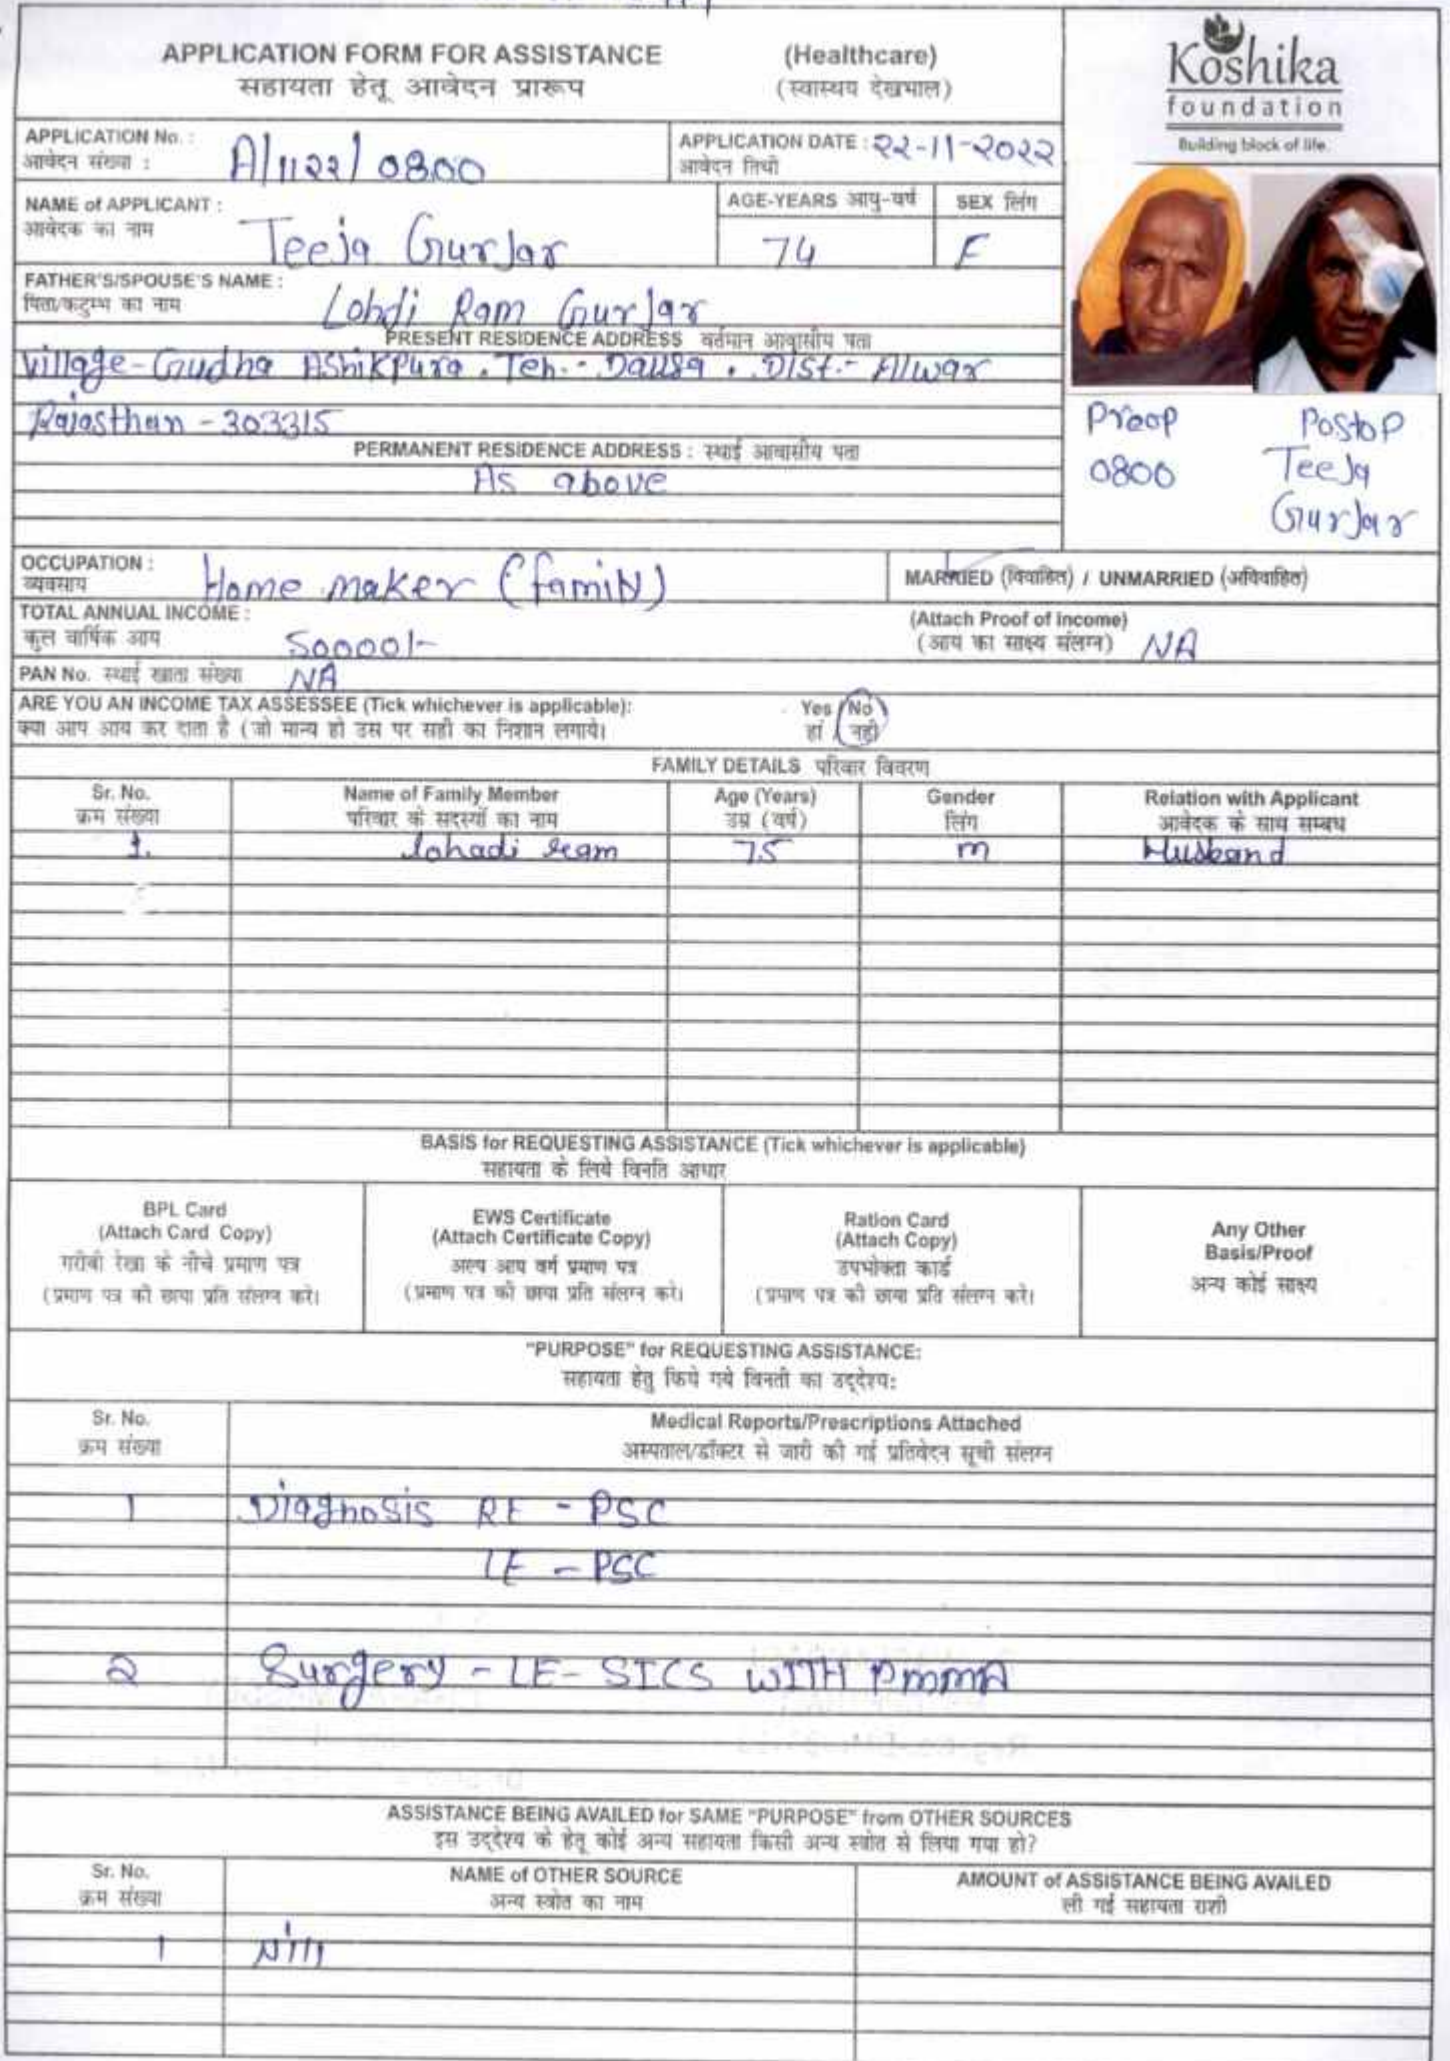 APPLICATION FORM FOR ASSISTANCE (Healthcare)
सहायता हेतू आवेदन प्रारूप (स्वास्थय देखभाल)
Koshika
foundation
Building block of life.
APPLICATION No. : A/1122/0800
आवेदन संख्या :
APPLICATION DATE : 22-11-2022
आवेदन तिथी
NAME of APPLICANT : Teeja Gurjar
आवेदक का नाम
AGE-YEARS आयु-वर्ष SEX लिंग
74 F
FATHER'S/SPOUSE'S NAME : Lohdi Ram Gurjar
पिता/कटुम्भ का नाम
PRESENT RESIDENCE ADDRESS वर्तमान आवासीय पता
Village-Gudha Ashikpura. Teh.- Dausa. Dist.- Alwar
Rajasthan - 303315
PERMANENT RESIDENCE ADDRESS : स्थाई आवासीय पता
As above
Preop Postop
0800 Teeja
Gurjar
OCCUPATION : Home maker (family)
व्यवसाय
MARRIED (विवाहित) / UNMARRIED (अविवाहित)
TOTAL ANNUAL INCOME : 50000/-
कुल वार्षिक आय
(Attach Proof of Income)
(आय का साक्ष्य संलग्न) NA
PAN No. स्थाई खाता संख्या NA
ARE YOU AN INCOME TAX ASSESSEE (Tick whichever is applicable): Yes No
क्या आप आय कर दाता है (जो मान्य हो उस पर सही का निशान लगाये। हां नही
FAMILY DETAILS परिवार विवरण
Sr. No. Name of Family Member Age (Years) Gender Relation with Applicant
क्रम संख्या परिवार के सदस्यों का नाम उम्र (वर्ष) लिंग आवेदक के साथ सम्बध
1. lohadi ram 75 m Husband
BASIS for REQUESTING ASSISTANCE (Tick whichever is applicable)
सहायता के लिये विनति आधार
BPL Card
(Attach Card Copy)
गरीबी रेखा के नीचे प्रमाण पत्र
(प्रमाण पत्र की छाया प्रति संलग्न करे।
EWS Certificate
(Attach Certificate Copy)
अल्प आय वर्ग प्रमाण पत्र
(प्रमाण पत्र की छाया प्रति संलग्न करे।
Ration Card
(Attach Copy)
उपभोक्ता कार्ड
(प्रमाण पत्र की छाया प्रति संलग्न करे।
Any Other
Basis/Proof
अन्य कोई साक्ष्य
"PURPOSE" for REQUESTING ASSISTANCE:
सहायता हेतु किये गये विनती का उद्देश्य:
Sr. No. Medical Reports/Prescriptions Attached
क्रम संख्या अस्पताल/डॉक्टर से जारी की गई प्रतिवेदन सूची संलग्न
1 Diagnosis RE - PSC
LE - PSC
2 Surgery - LE- SICS WITH PMMA
ASSISTANCE BEING AVAILED for SAME "PURPOSE" from OTHER SOURCES
इस उद्देश्य के हेतू कोई अन्य सहायता किसी अन्य स्त्रोत से लिया गया हो?
Sr. No. NAME of OTHER SOURCE AMOUNT of ASSISTANCE BEING AVAILED
क्रम संख्या अन्य स्त्रोत का नाम ली गई सहायता राशी
1 Nill